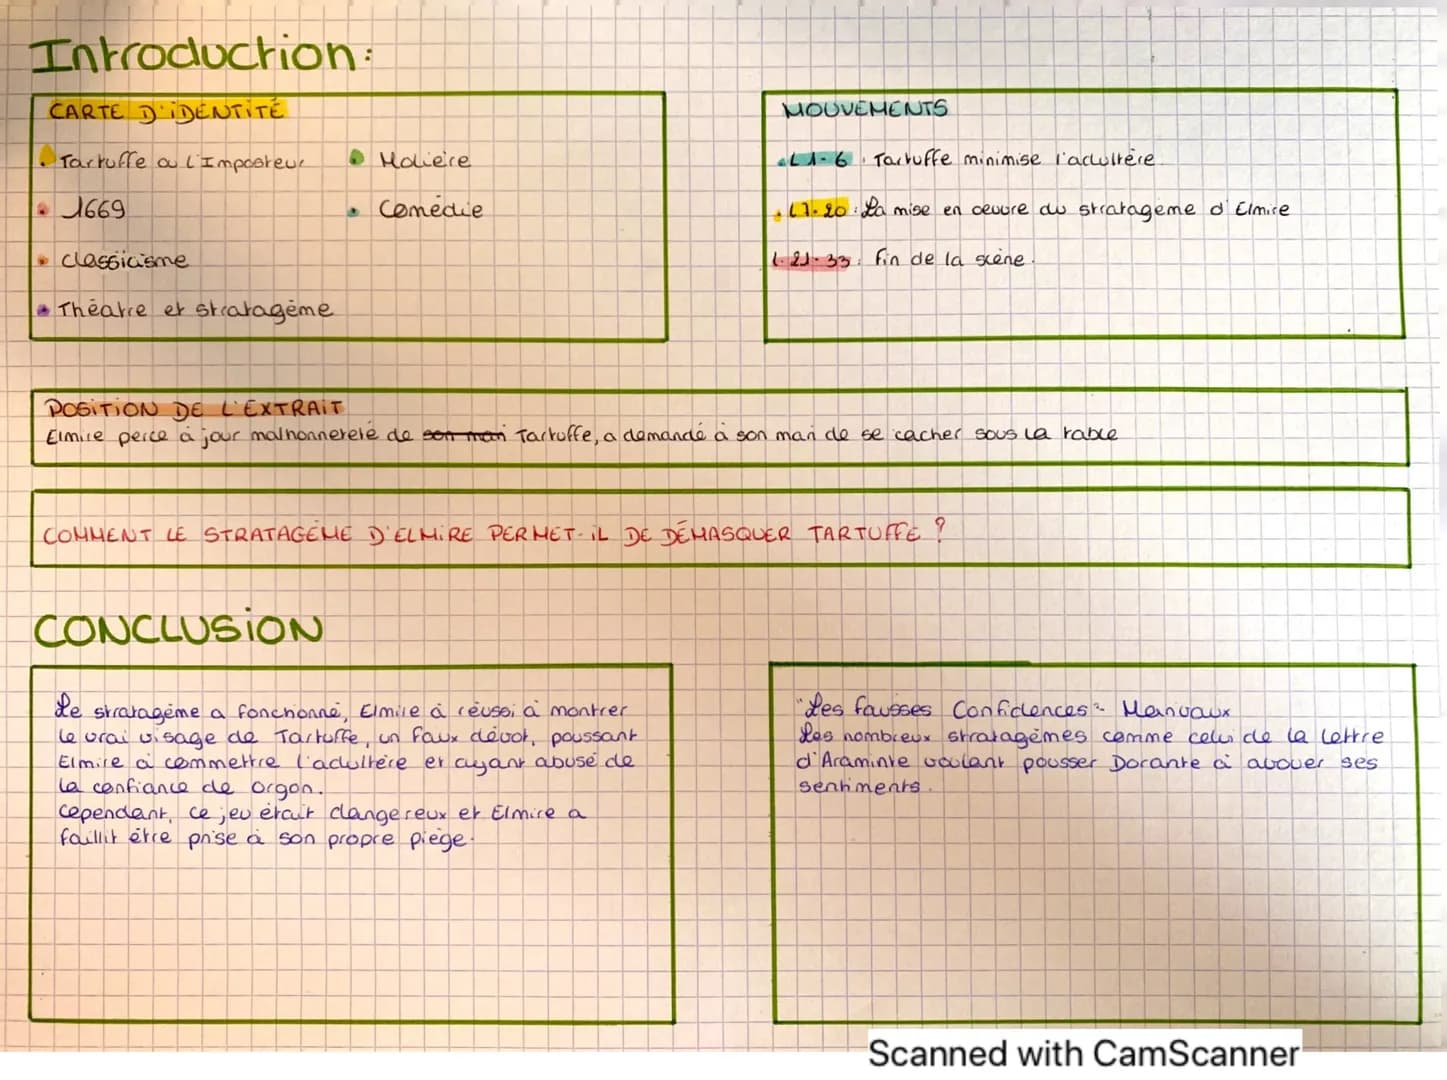 Introduction:
CARTE D'IDENTITÉ
Tartuffe ou l'Imposteur
Molière
1669
Comédie
classicisme
Théâtre et stratagème
MOUVEMENTS
L 1-6: Tartuffe minimise l'adultère
L 7-20: La mise en oeuvre du stratagème d'Elmire
L.21-33: fin de la scène.
POSITION DE L'EXTRAIT
Elmire perce à jour malhonnêteté de son mari Tartuffe, a demandé à son mari de se cacher sous la table
COMMENT LE STRATAGÈME D'ELMIRE PERMET-IL DE DÉMASQUER TARTUFFE ?
CONCLUSION
Le stratagème a fonctionné, Elmire à réussi à montrer
le vrai visage de Tartuffe, un faux dévot, poussant
Elmire à commettre l'adultère et ayant abusé de
la confiance de Orgon.
Cependant, ce jeu était dangereux et Elmire a
faillit être prise à son propre piège.
"Les fausses Confidences" - Marivaux
Les nombreux stratagèmes comme celui de la lettre
d'Araminte voulant pousser Dorante à avouer ses
sentiments.
Scanned with CamScanner